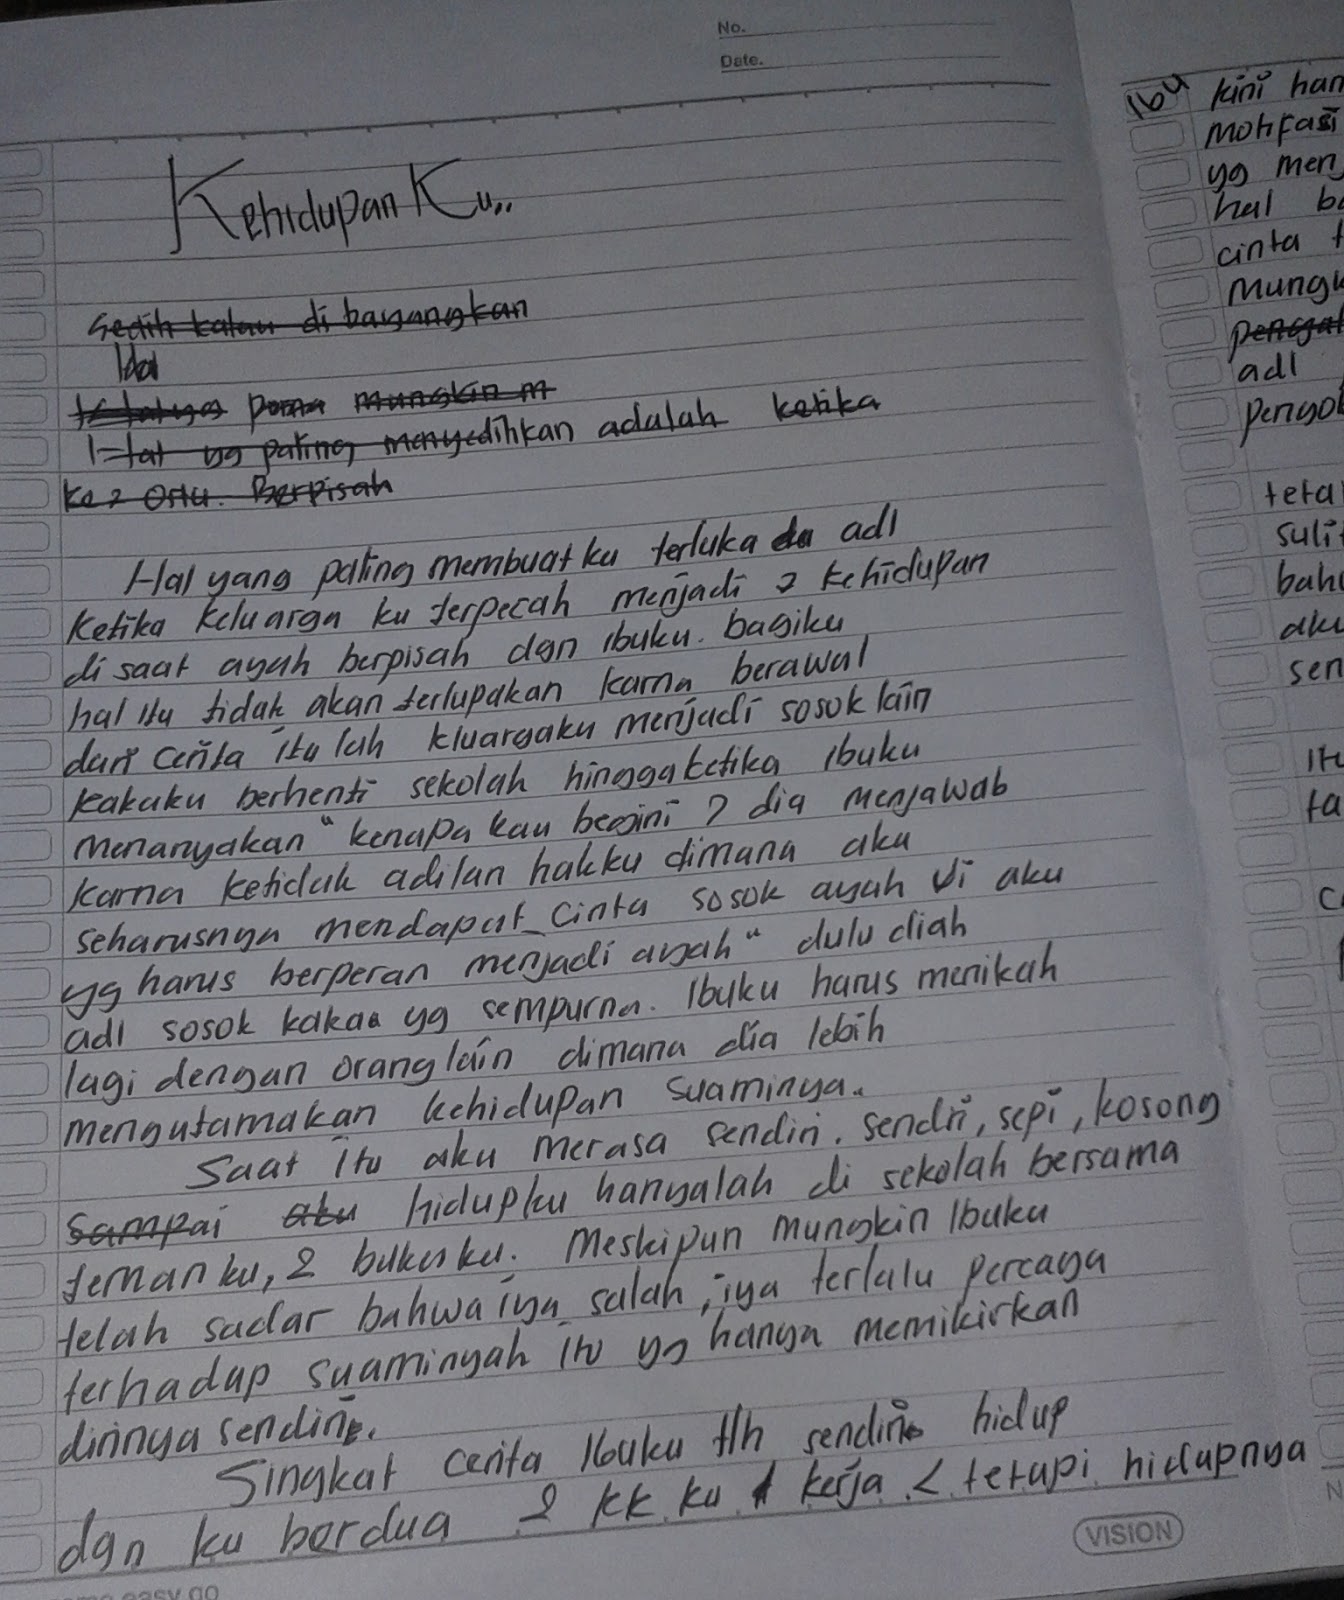 No.
Date.
Kehidupan Ku,,
sedih kalau di bayangkan
mungkin m
Hal yg paling menyedihkan adalah ketika
ke 2 Ortu. Berpisah
Hal yang paling membuat ku terluka adl
ketika keluarga ku terpecah menjadi 2 kehidupan
di saat ayah berpisah dgn ibuku. bagiku
hal itu tidak akan terlupakan karna berawal
dari cerita itu lah kluargaku menjadi sosok lain
kakaku berhenti sekolah hingga ketika ibuku
menanyakan “kenapa kau begini ? dia menjawab
karna ketidak adilan hakku dimana aku
seharusnya mendapat cinta sosok ayah di aku
yg harus berperan menjadi ayah“ dulu diah
adl sosok kakaa yg sempurna. Ibuku harus menikah
lagi dengan orang lain dimana dia lebih
mengutamakan kehidupan suaminya..
Saat itu aku merasa sendiri. sendri, sepi, kosong
sampai aku hidupku hanyalah di sekolah bersama
teman ku, 2 buku ku. Meskipun mungkin Ibuku
telah sadar bahwa iya salah, iya terlalu percaya
terhadap suaminyah itu yg hanya memikirkan
dirinya sendiri.
Singkat cerita Ibuku tlh sendiri hidup
dgn ku berdua 2 kk ku kerja < tetapi hidupnya
VISION
Ibu kini han
motifasi
yg men
hal b
cinta t
mungk
adl
penyo
teta
suli
bah
aku
sen
itu
ta